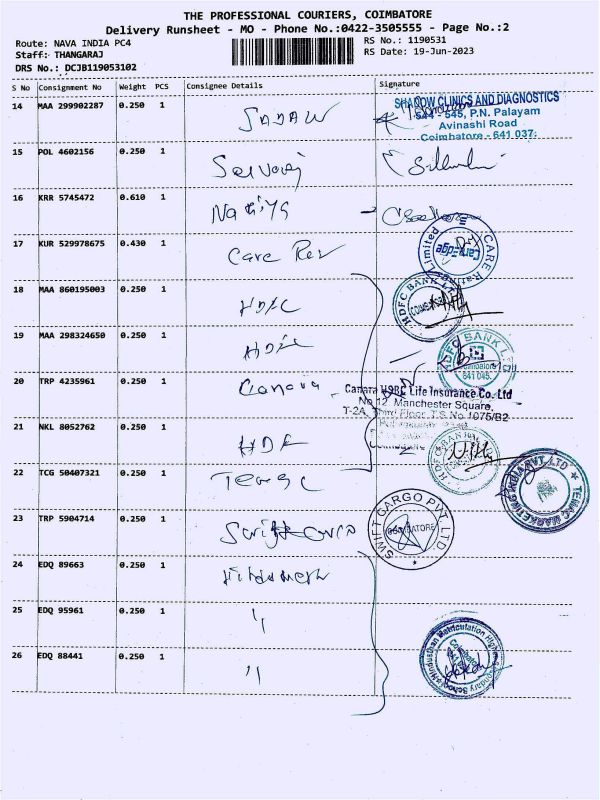 THE PROFESSIONAL COURIERS, COIMBATORE
Delivery Runsheet - MO - Phone No.:0422-3505555 - Page No.:2
Route: NAVA INDIA PC4
RS No.: 1190531
Staff: THANGARAJ
RS Date: 19-Jun-2023
DRS No.: DCJB119053102
S No Consignment No Weight PCS Consignee Details Signature
14 MAA 299902287 0.250 1
SHADOW CLINICS AND DIAGNOSTICS
544 - 545, P.N. Palayam
Avinashi Road
Coimbatore - 641 037.
15 POL 4602156 0.250 1 Selvaraj
16 KRR 5745472 0.610 1
17 KUR 529978675 0.430 1 Care
CARE Ratings Limited
CareEdge
18 MAA 860195003 0.250 1 HDFC
HDFC BANK LTD
19 MAA 298324650 0.250 1 HDFC
HDFC BANK LTD
Coimbatore
641 045.
20 TRP 4235961 0.250 1 Canara
Canara HSBC Life Insurance Co. Ltd
No 12, Manchester Square,
T-24, Third Floor, T.S No 1075/B2
21 NKL 8052762 0.250 1 HDF
HDFC BANK LTD
22 TCG 50407321 0.250 1
TEMAC MARKETING INDIA PVT. LTD
23 TRP 5904714 0.250 1 Swift Cargo
SWIFT CARGO PVT. LTD
COIMBATORE
24 EDQ 89663 0.250 1
25 EDQ 95961 0.250 1 "
26 EDQ 88441 0.250 1 "
Hindusthan Matriculation Higher Secondary School
Coimbatore